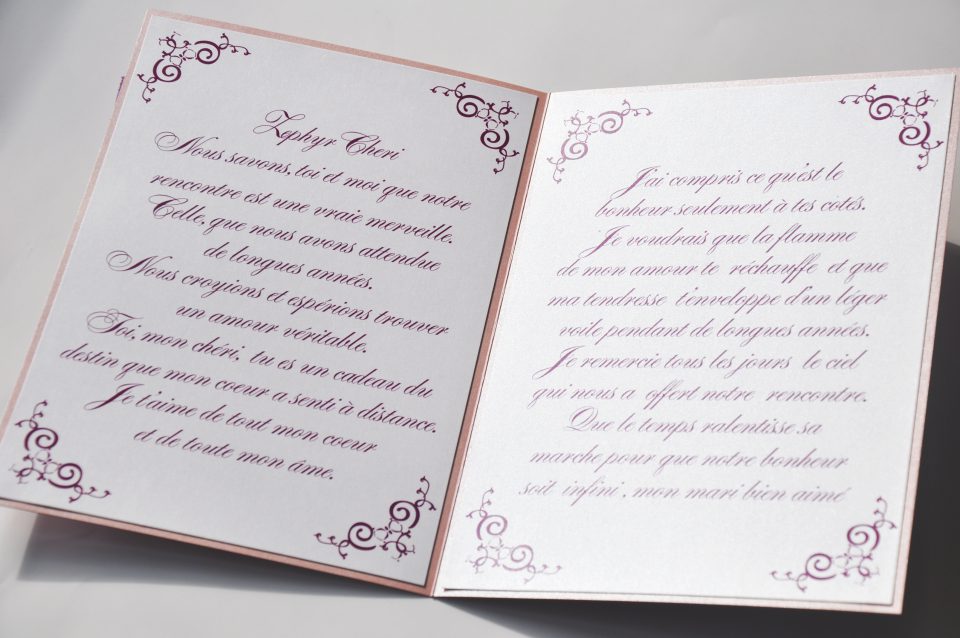 Zephyr Cheri
Nous savons, toi et moi que notre
rencontre est une vraie merveille.
Celle, que nous avons attendue
de longues années.
Nous croyions et espérions trouver
un amour véritable.
Toi, mon chéri, tu es un cadeau du
destin que mon coeur a senti à distance.
Je t'aime de tout mon coeur
et de toute mon âme.
J'ai compris ce qu'est le
bonheur seulement à tes cotés.
Je voudrais que la flamme
de mon amour te réchauffe et que
ma tendresse t'enveloppe d'un léger
voile pendant de longues années.
Je remercie tous les jours le ciel
qui nous a offert notre rencontre.
Que le temps ralentisse sa
marche pour que notre bonheur
soit infini, mon mari bien aimé